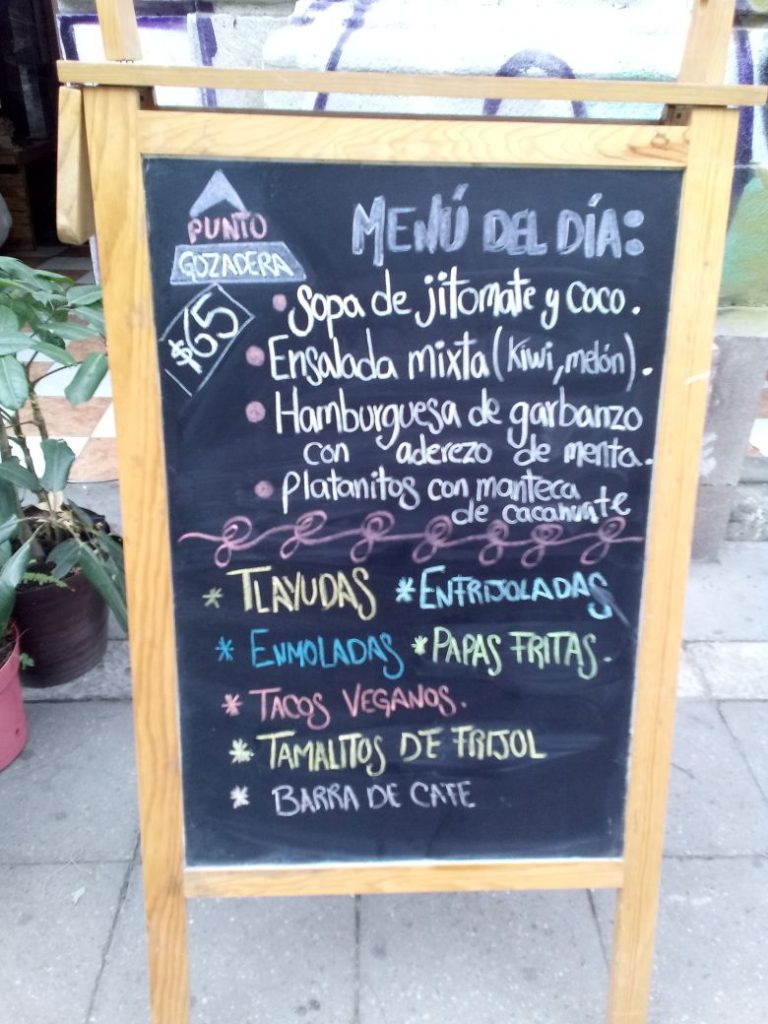 PUNTO
GOZADERA
$65
MENÚ DEL DÍA:
Sopa de jitomate y coco.
Ensalada mixta (Kiwi, melón).
Hamburguesa de garbanzo
con aderezo de menta.
Platanitos con manteca
de cacahuate
* TLAYUDAS * ENFRIJOLADAS
* ENMOLADAS * PAPAS FRITAS.
* TACOS VEGANOS.
* TAMALITOS DE FRIJOL
* BARRA DE CAFE